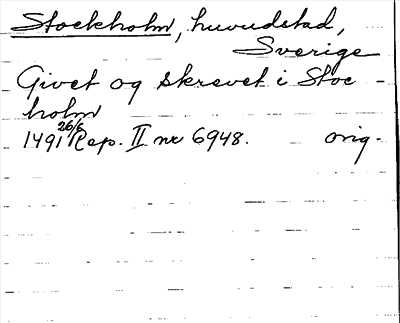 Stockholm, huvudstad,
Sverige
Givet og skrevet i Stoc -
holm
1491 26/6 Rep. II nr 6948. orig.